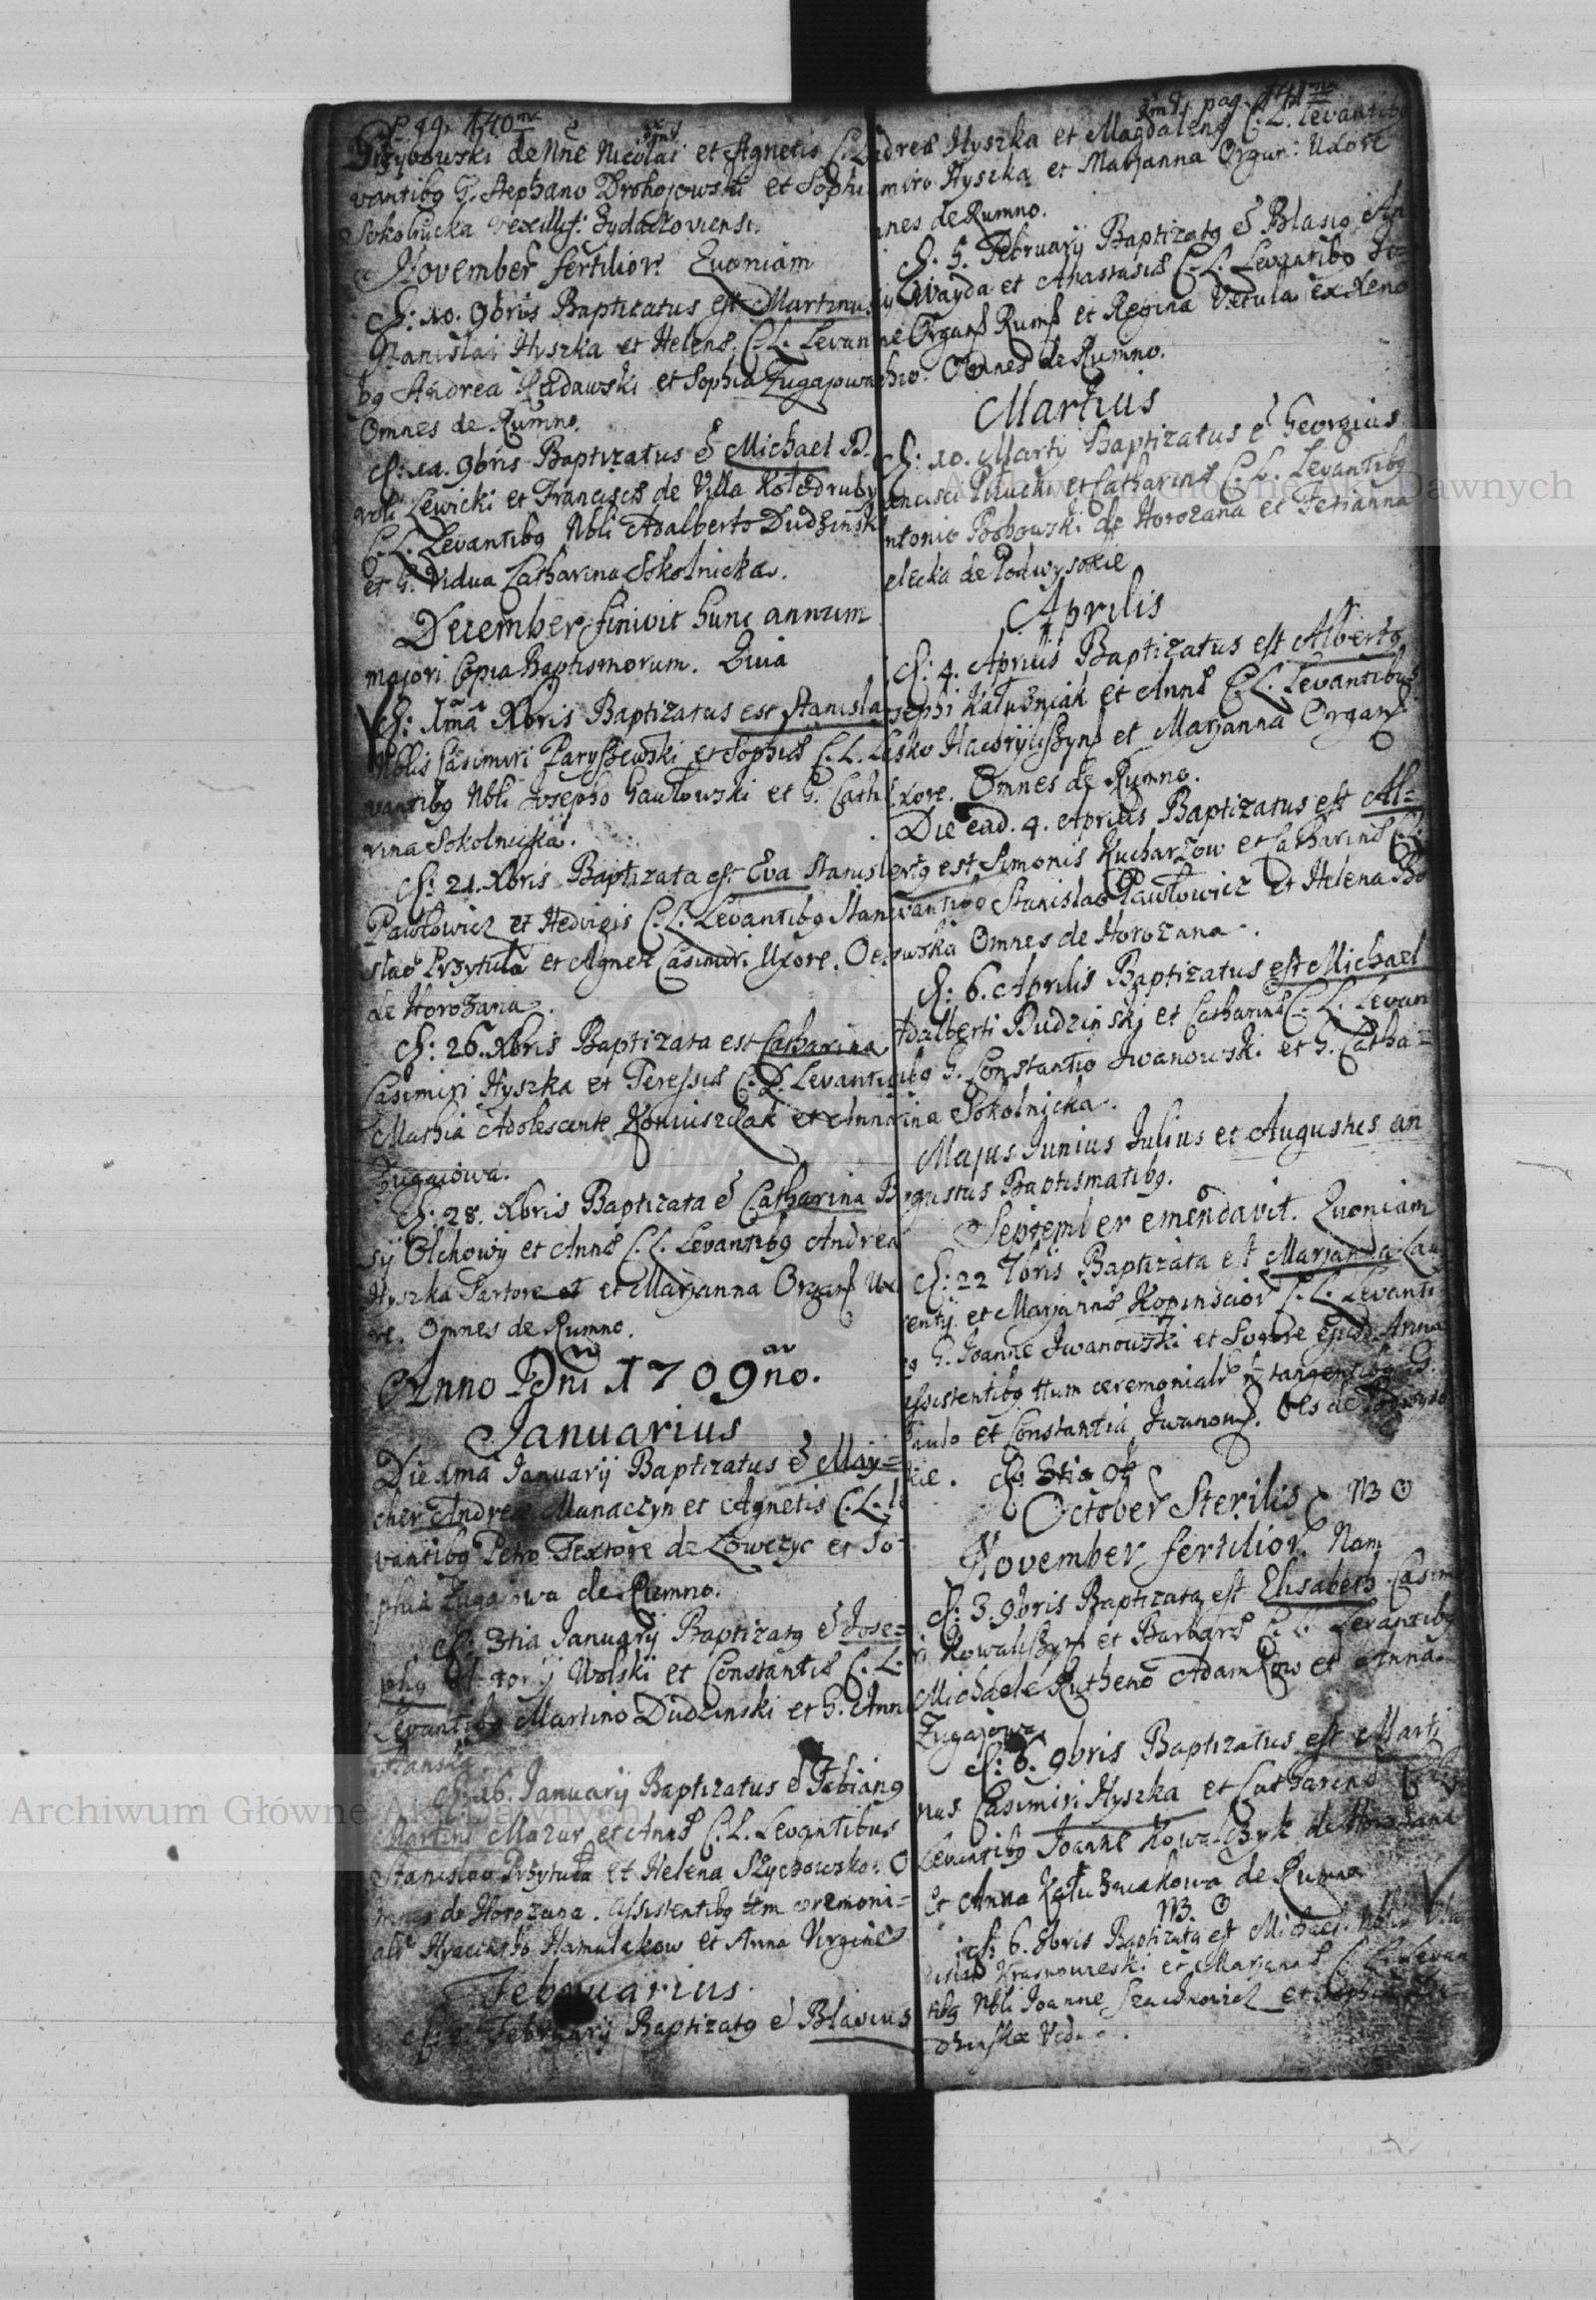 P. 99. 140ma
Grzybowski de Nne Nicolai et Agnetis C. L. Le
vantibg G. Stephano Drohojowski et Sophia
Sokolnicka vexillif: Zydaczoviensi.
November fertilior. Quoniam
d: 10. 9bris Baptizatus est Martinus
Stanislai Hyszka et Helenæ C. L. Levanti
bg Andrea Rudawski et Sophia Zugajowna
Omnes de Rumno.
d: 12. 9bris Baptizatus ē Michael
roli Lewicki et Franciscæ de Villa Kołodruby
C. L. Levantibg Nbli Adalberto Dudzinski
et G. Vidua Catharina Sokolnicka.
December finivit hunc annum
majori Copia Baptismorum. Quia
d: 1ma Xbris Baptizatus est Stanisla
Nblis Casimiri Paryszewski et Sophiæ C. L. Le
vantibg Nbli Josepho Gawłowski et G. Catha
rina Sokolnicka.
d: 21. Xbris Baptizata est Eva Stanisl
Pawłowicz et Hedvigis C. L. Levantibg Stani
slao Przytuła et Agnete Casimiri Uxore. Oes
de Horozana.
d: 26. Xbris Baptizata est Catharina
Casimiri Hyszka et Teressiæ C. L. Levantibg
Mathia Adolescente Koniuszczak et Anna
Zugaiowa.
d: 28. Xbris Baptizata ē Catharina
sij Olchowy et Annæ C. L. Levantibg Andrea
Hyszka Sartore et et Marjanna Organ Uxo
re. Omnes de Rumno.
Anno Dni 1709no.
Januarius
Die 1ma Januarij Baptizatus ē May=
cher Andreæ Manaczyn et Agnetis C. L. Le
vantibg Petro Textore de Łowczyc et So-
phia Zugajowa de Rumno.
d: 3tia Januarij Baptizatg ē Jose=
phg Wolski et Constantiæ C. L.
Levantibg Martino Dudzinski et G. Anna
d: 16. Januarij Baptizatus ē Fabiang
Martini Mazur et Annæ C. L. Levantibus
Stanislao Przytuła et Helena Słychowska. O
mnes de Horozana. Assistentibg ttm ceremoni=
ali Hyacintho Hamulakow et Anna Virgine
Februarius
Februarij Baptizatg ē Blasius
pag. 141ma
Andreæ Hyszka et Magdalenæ C. L. Levantibg
miro Hyszka et Marjanna Organ: Uxore
nes de Rumno.
d: 5. Februarij Baptizatg ē Blasig An
Wayda et Anastasiæ C. L. Levantibg Jo=
ne Organ Rumn et Regina Vetula ex Xeno
chio. Omnes de Rumno.
Martius
d: 10. Marty Baptizatus ē Georgius
ancisci Pilucki et Catharinæ C. L. Levantibg
ntonio Bohowski de Horozana et Tetianna
elecka de Podwysokie
Aprilis
d: 4. Aprilis Baptizatus est Albertg
sephi Katuzniak et Annæ C. L. Levantibus
Lesko Hawryliszyn et Marjanna Organ
Uxore. Omnes de Rumno.
Die ead. 4. Aprilis Baptizatus est Al=
bertg est Simonis Kucharzow et Catharinæ C. L.
Levantibg Stanislao Pawłowicz et Helena Bo
owska Omnes de Horozana.
d: 6. Aprilis Baptizatus est Michael
Adalberti Budzinskj et Catharinæ C. L. Levan
tibg G. Constantio Jwanowski et G. Catha=
rina Sokolnicka.
Majus Junius Julius et Augustus an
gustus Baptismatibg.
September emendavit. Quoniam
d: 22 7bris Baptizata est Marjanna Lau
rentij et Marjannæ Kopinscior C. L. Levanti
bg G. Joanne Jwanowski et Sorore ejusd. Anna
Assistentibg ttum ceremoniali n tangentibg G.
Paulo et Constantia Jwanows. Oes de Podwyso
kie. d: 3tia
October Sterilis NB
November fertilior. Nam
d: 3. 9bris Baptizata est Elisabeth Casim
ri Kowaliszyn et Barbaræ C. L. Levantibg
Michaele Rutheno Adamkow et Anna
Zugajowa
d: 6. 9bris Baptizatus est Marti
nus Casimiri Hyszka et Catharinæ C. L.
Levantibg Joanne Kowalczyk de Horozana
et Anna Katuzniakowa de Rumno
NB.
d: 6. 8bris Baptizatg est Michael Nblis Vla
dislai Krasnoweski et Marjannæ C. L. Levan
tibg Nbli Joanne et Sophia
dzinska Vid
Archiwum Główne Akt Dawnych
Archiwum Główne Akt Dawnych